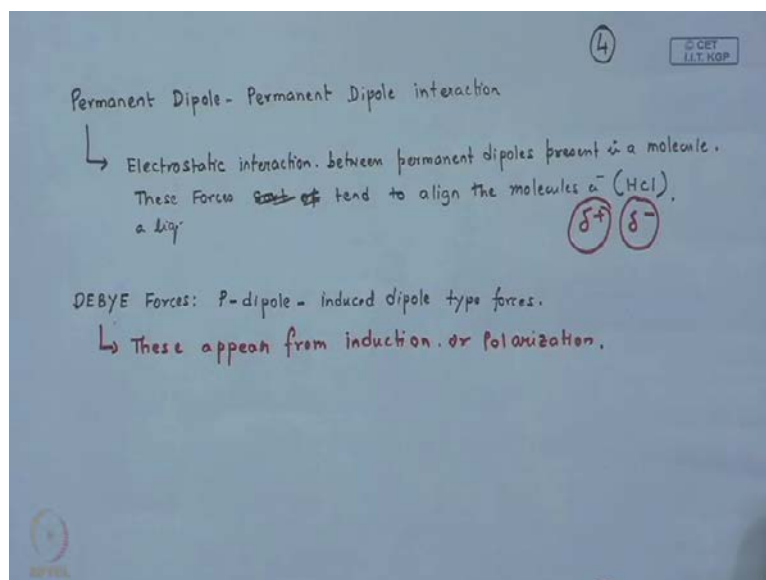 4
© CET
I.I.T. KGP
Permanent Dipole - Permanent Dipole interaction
Electrostatic interaction. between permanent dipoles present in a molecule.
These Forces tend to align the molecules in (HCl).
a liq
δ+ δ-
DEBYE Forces: P-dipole - induced dipole type forces.
These appear from induction. or Polarization.